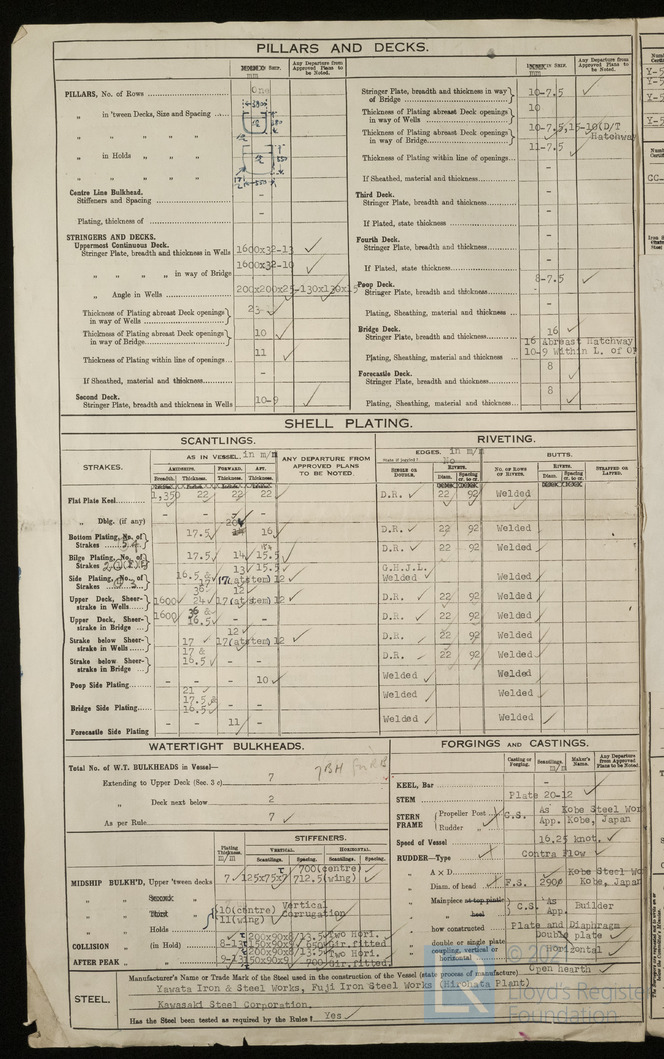 PILLARS AND DECKS.
INCHES IN SHIP.
mm
Any Departure from Approved Plans to be Noted.
PILLARS, No. of Rows One
„ in 'tween Decks, Size and Spacing
„ „ „ „ „
„ in Holds „ „ „
„ „ „ „ „
Centre Line Bulkhead.
Stiffeners and Spacing -
Plating, thickness of -
STRINGERS AND DECKS.
Uppermost Continuous Deck.
Stringer Plate, breadth and thickness in Wells 1600x32-13 ✓
„ „ „ „ in way of Bridge 1600x32-10 ✓
„ Angle in Wells 200x200x25-130x130x15
Thickness of Plating abreast Deck openings in way of Wells 23 ✓
Thickness of Plating abreast Deck openings in way of Bridge 10 ✓
Thickness of Plating within line of openings 11 ✓
If Sheathed, material and thickness -
Second Deck.
Stringer Plate, breadth and thickness in Wells 10-9 ✓
INCHES IN SHIP.
mm
Any Departure from Approved Plans to be Noted.
Stringer Plate, breadth and thickness in way of Bridge 10-7.5 ✓
Thickness of Plating abreast Deck openings in way of Wells 10
Thickness of Plating abreast Deck openings in way of Bridge 10-7.5,15-10(D/T Hatchway
Thickness of Plating within line of openings 11-7.5 ✓
If Sheathed, material and thickness -
Third Deck.
Stringer Plate, breadth and thickness -
If Plated, state thickness -
Fourth Deck.
Stringer Plate, breadth and thickness -
If Plated, state thickness -
Poop Deck.
Stringer Plate, breadth and thickness 8-7.5 ✓
Plating, Sheathing, material and thickness -
Bridge Deck.
Stringer Plate, breadth and thickness 16 ✓
Plating, Sheathing, material and thickness 16 Abreast Hatchway
10-9 Within L. of OP
Forecastle Deck.
Stringer Plate, breadth and thickness 8 ✓
Plating, Sheathing, material and thickness 8 ✓
SHELL PLATING.
SCANTLINGS.
RIVETING.
STRAKES.
AS IN VESSEL. in m/m
AMIDSHIPS. FORWARD. AFT.
Breadth. Thickness. Thickness. Thickness.
ANY DEPARTURE FROM APPROVED PLANS TO BE NOTED.
EDGES. in m/m
State if joggled? No
SINGLE OR DOUBLE.
RIVETS.
Diam. Spacing cr. to cr.
BUTTS.
No. OF ROWS OF RIVETS.
RIVETS.
Diam. Spacing cr. to cr.
STRAPPED OR LAPPED.
Flat Plate Keel 1,350 22 22 22 D.R. ✓ 22 92 Welded
„ Dblg. (if any) - - - -
Bottom Plating, No. of Strakes 17.5 ✓ 16 ✓ D.R. ✓ 22 92 Welded ✓
Bilge Plating, No. of Strakes 17.5 ✓ 14 15.5 D.R. ✓ 22 92 Welded ✓
Side Plating, No. of Strakes 16.5 & 17 13 15.5 17(at stem) 12 ✓ G.H.J.L. Welded ✓ Welded
Upper Deck, Sheerstrake in Wells 1600 24 12 17(at stem) 12 ✓ D.R. ✓ 22 92 Welded ✓
Upper Deck, Sheerstrake in Bridge 1600 36 & 16.5 - - D.R. ✓ 22 92 Welded ✓
Strake below Sheerstrake in Wells 17 ✓ 12 ✓ 17(at stem) 12 ✓ D.R. ✓ 22 92 Welded ✓
Strake below Sheerstrake in Bridge 17 & 16.5 ✓ - - D.R. ✓ 22 92 Welded ✓
Poop Side Plating - - - 10 ✓ Welded ✓ Welded
Bridge Side Plating 21 ✓ 17.5 & 16.5 ✓ - - Welded ✓ Welded ✓
Forecastle Side Plating - - 11 ✓ - Welded ✓ Welded ✓
WATERTIGHT BULKHEADS.
Total No. of W.T. BULKHEADS in Vessel—
Extending to Upper Deck (Sec. 3 c) 7
„ Deck next below 2
As per Rule 7 ✓
Plating Thickness. m/m
STIFFENERS.
VERTICAL. HORIZONTAL.
Scantlings. Spacing. Scantlings. Spacing.
MIDSHIP BULKH'D, Upper 'tween decks 7 ✓ 125x75x7 700(centre) 712.5(wing)
„ Second „
„ Third „
„ Holds 10(centre) 11(wing) Vertical Corrugation
COLLISION „ (in Hold) 8-13 200x90x8/13.5 150x90x9 650 Two Hori. Gir.fitted
AFTER PEAK „ „ 9-13 200x90x8/13.5 150x90x9 700 Two Hori. Gir.fitted
FORGINGS AND CASTINGS.
Casting or Forging. Scantlings. m/m Maker's Name. Any Departure from Approved Plans to be Noted.
KEEL, Bar -
STEM Plate 20-12 ✓
STERN FRAME { Propeller Post
Rudder „
C.S. As App. Kobe Steel Wor
Kobe, Japan
Speed of Vessel 16.25 knot. ✓
RUDDER—Type Contra Flow ✓
„ A x D ✓
„ Diam. of head F.S. 290Ø Kobe Steel Wo
Kobe, Japan
„ Mainpiece at top pintle
„ heel
C.S. As App. Builder
„ how constructed Plate and Diaphragm
„ double or single plate Double plate ✓
„ coupling, vertical or horizontal Horizontal
STEEL.
Manufacturer's Name or Trade Mark of the Steel used in the construction of the Vessel (state process of manufacture) Open hearth ✓
Yawata Iron & Steel Works, Fuji Iron Steel Works (Hirohata Plant)
Kawasaki Steel Corporation.
Has the Steel been tested as required by the Rules? Yes ✓
Lloyd's Register
Foundation